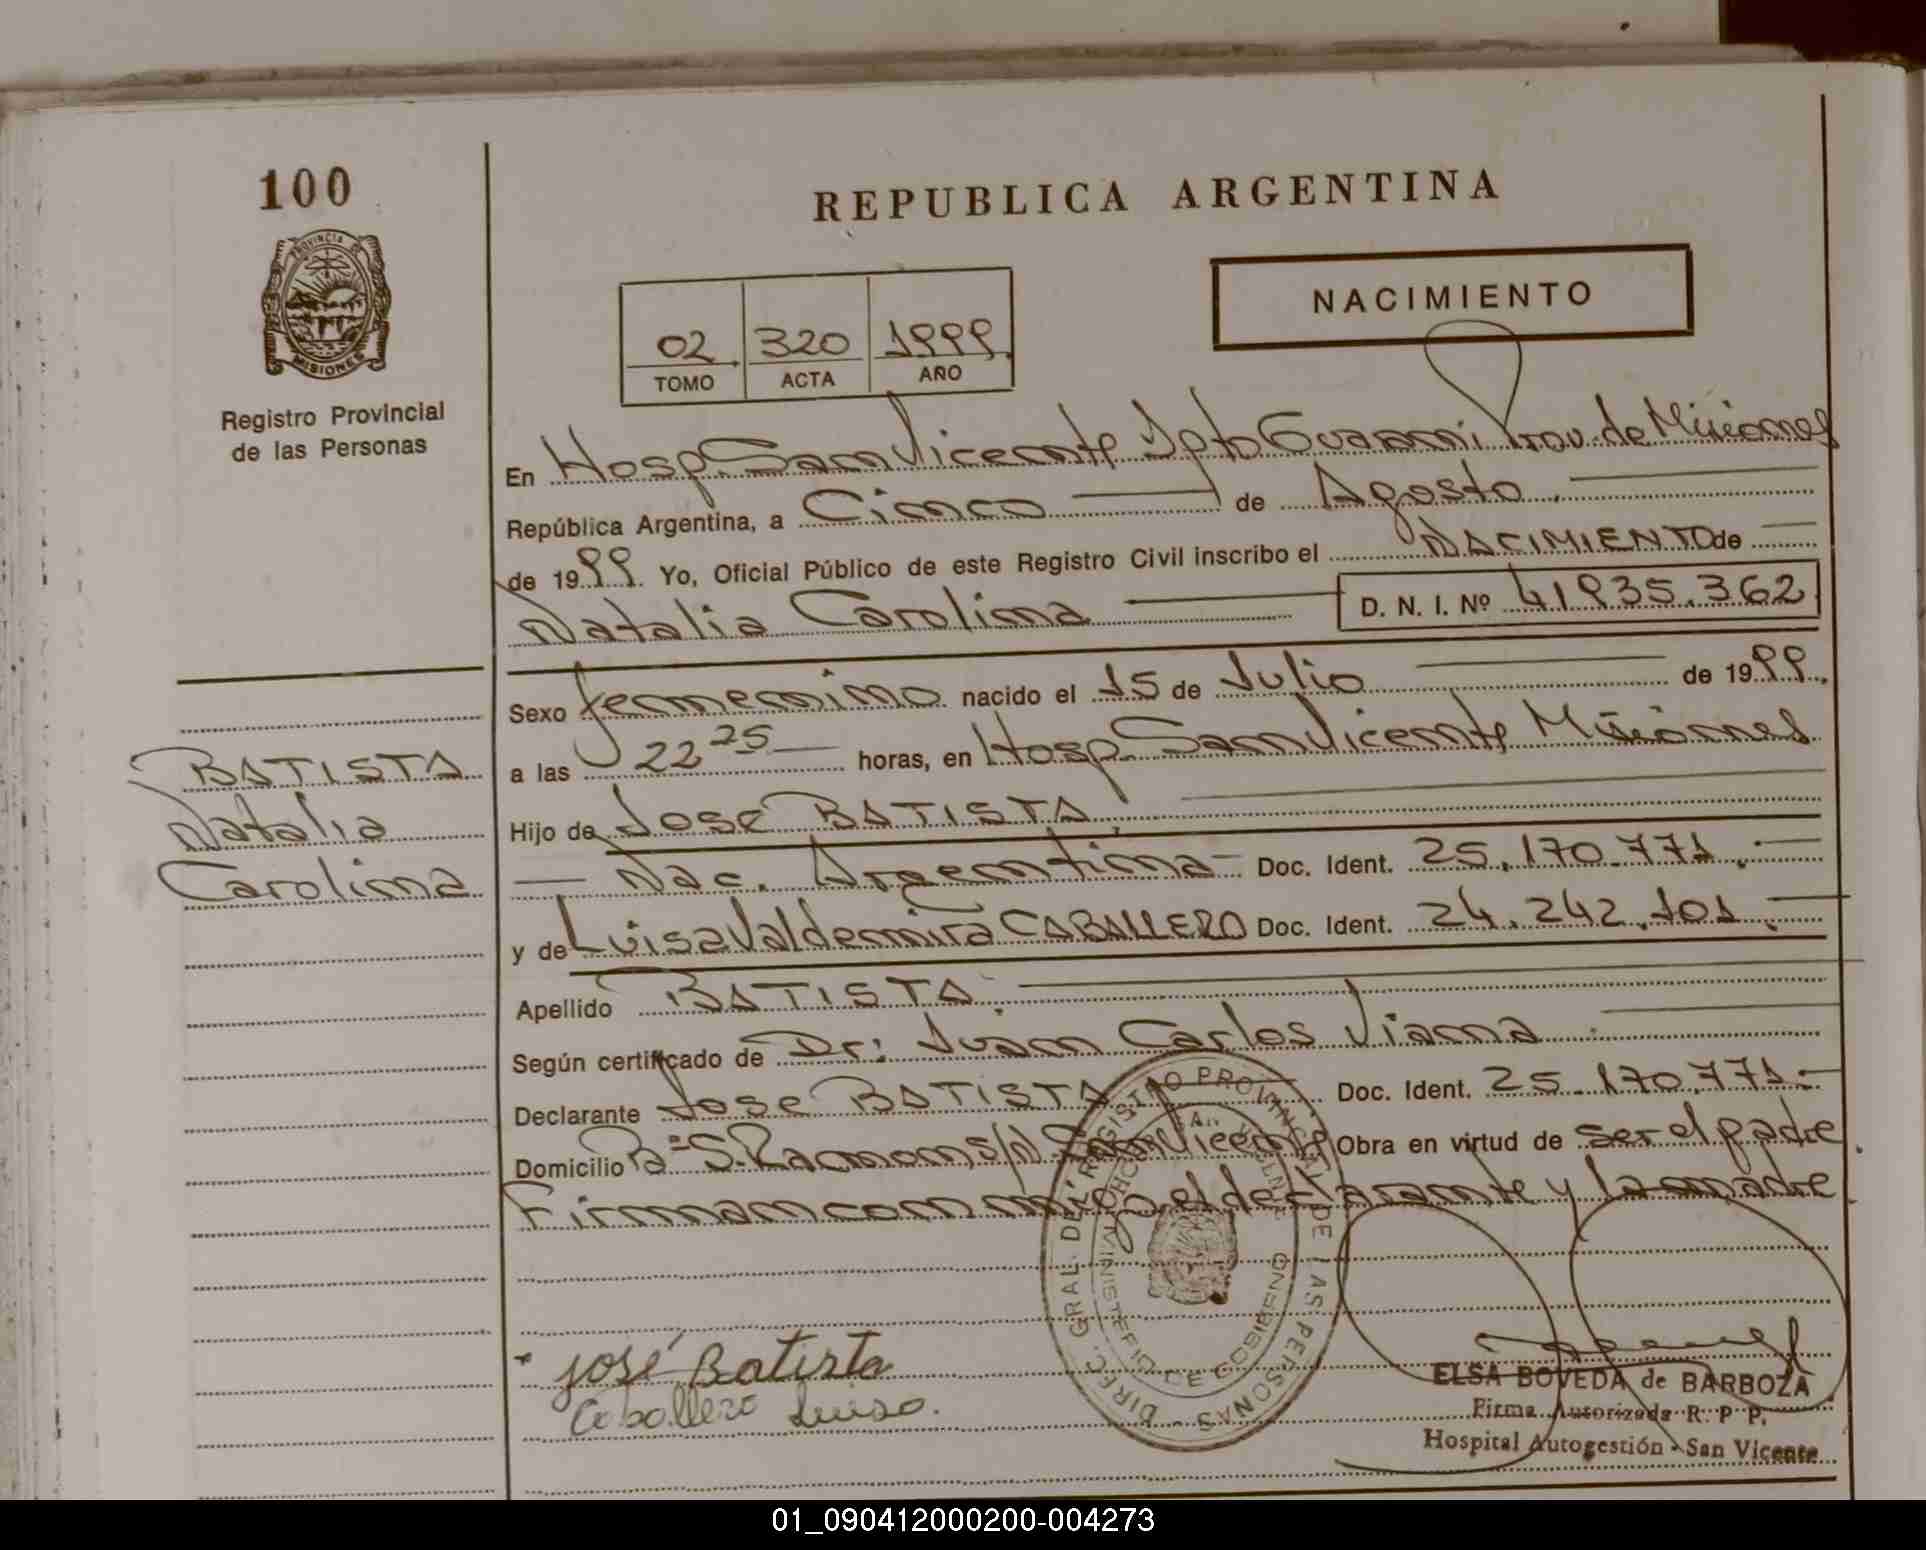 100
PROVINCIA DE
MISIONES
Registro Provincial
de las Personas
BATISTA
Natalia
Carolina
REPUBLICA ARGENTINA
NACIMIENTO
02 320 1999
TOMO ACTA AÑO
En Hosp. San Vicente Dpto Guarani Prov. de Misiones
República Argentina, a Cinco de Agosto.
de 1999. Yo, Oficial Público de este Registro Civil inscribo el NACIMIENTO de
Natalia Carolina D. N. I. Nº 41935.362
Sexo femenino nacido el 15 de Julio de 1999.
a las 22 25 horas, en Hosp. San Vicente Misiones
Hijo de José BATISTA.
Nac. Argentina- Doc. Ident. 25.170.771.-
y de Luisa Valdemira CABALLERO Doc. Ident. 24.242.101.-
Apellido BATISTA.
Según certificado de Dr: Juan Carlos Viana.
Declarante Jose BATISTA Doc. Ident. 25.170.771.-
Domicilio Bº S. Ramon s/n San Vicente Obra en virtud de ser el padre.
Firman con migo el declarante y la madre.
DIREC. GRAL. DEL REGISTRO PROVINCIAL DE LAS PERSONAS
MINISTERIO DE GOBIERNO
José Batista
Caballero Luisa.
ELSA BOVEDA de BARBOZA
Firma Autorizada R. P P.
Hospital Autogestión - San Vicente
01_090412000200-004273